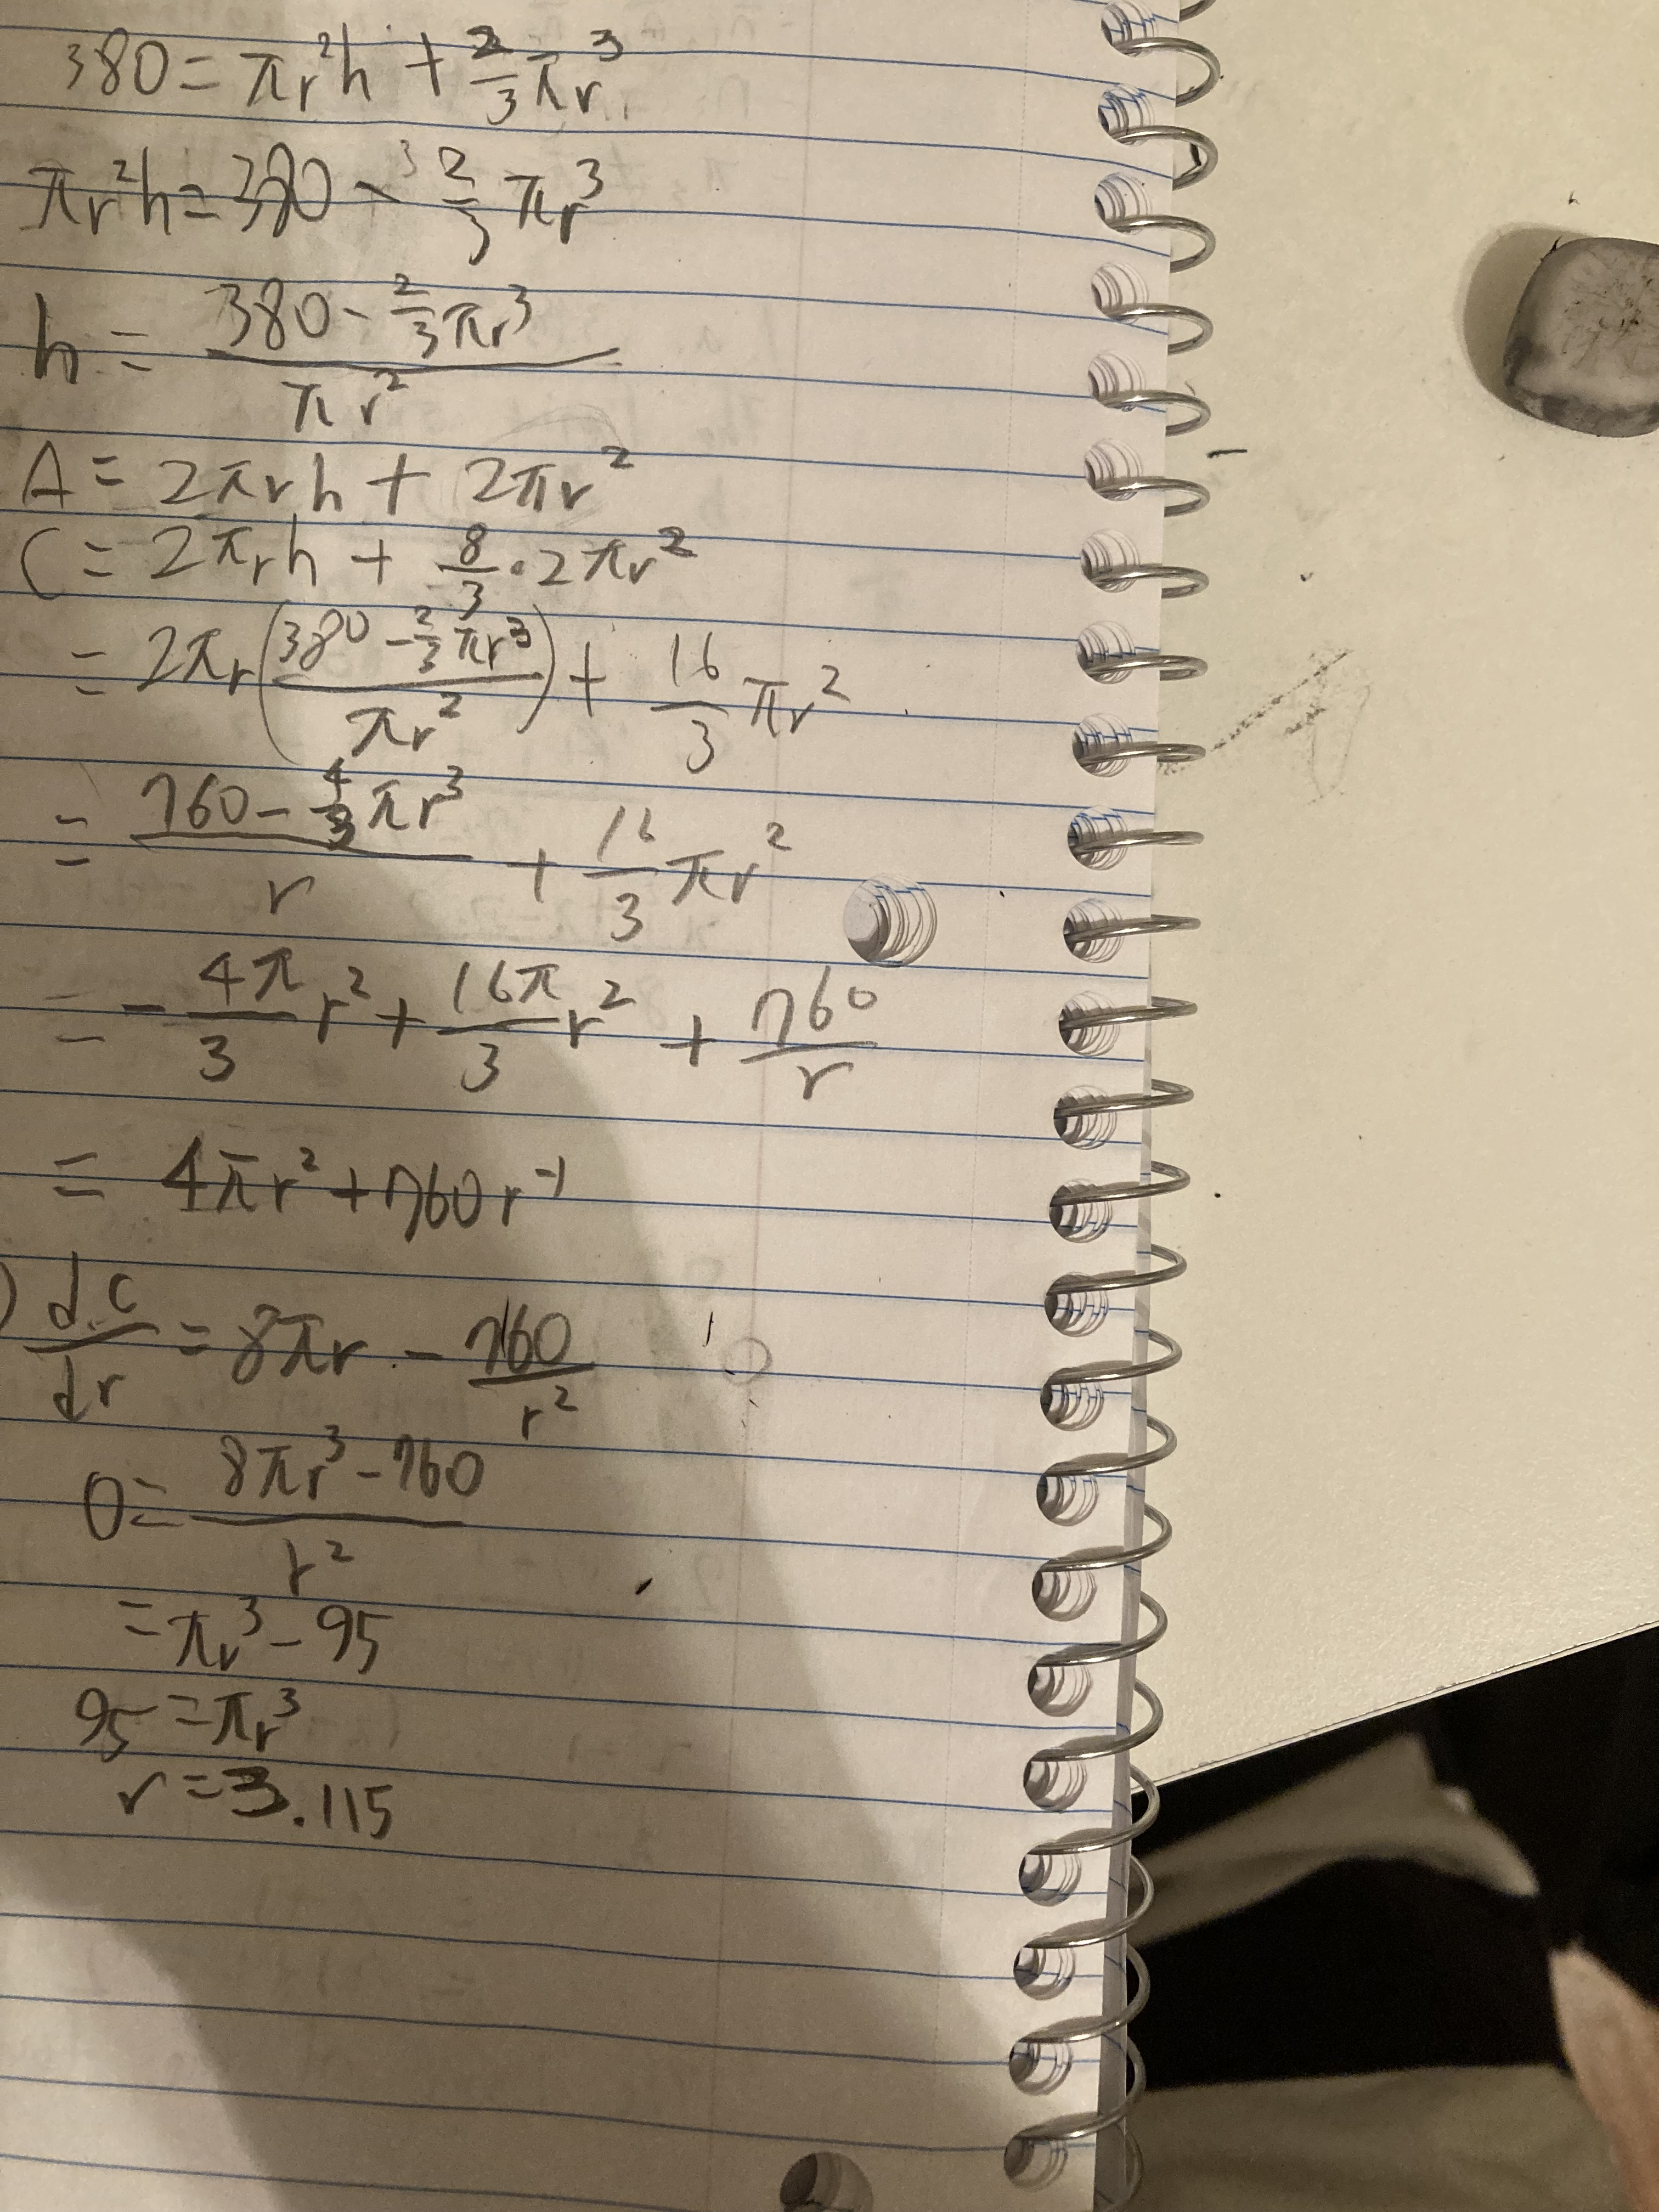 380 = πr²h + 2/3 πr³
πr²h = 380 - 2/3 πr³
h = (380 - 2/3 πr³) / πr²
A = 2πrh + 2πr²
C = 2πrh + 8/3 · 2πr²
= 2πr((380 - 2/3 πr³) / πr²) + 16/3 πr²
= (760 - 4/3 πr³) / r + 16/3 πr²
= - 4π/3 r² + 16π/3 r² + 760/r
= 4πr² + 760r⁻¹
) dC/dr = 8πr - 760/r²
0 = (8πr³ - 760) / r²
= πr³ - 95
95 = πr³
r = 3.115